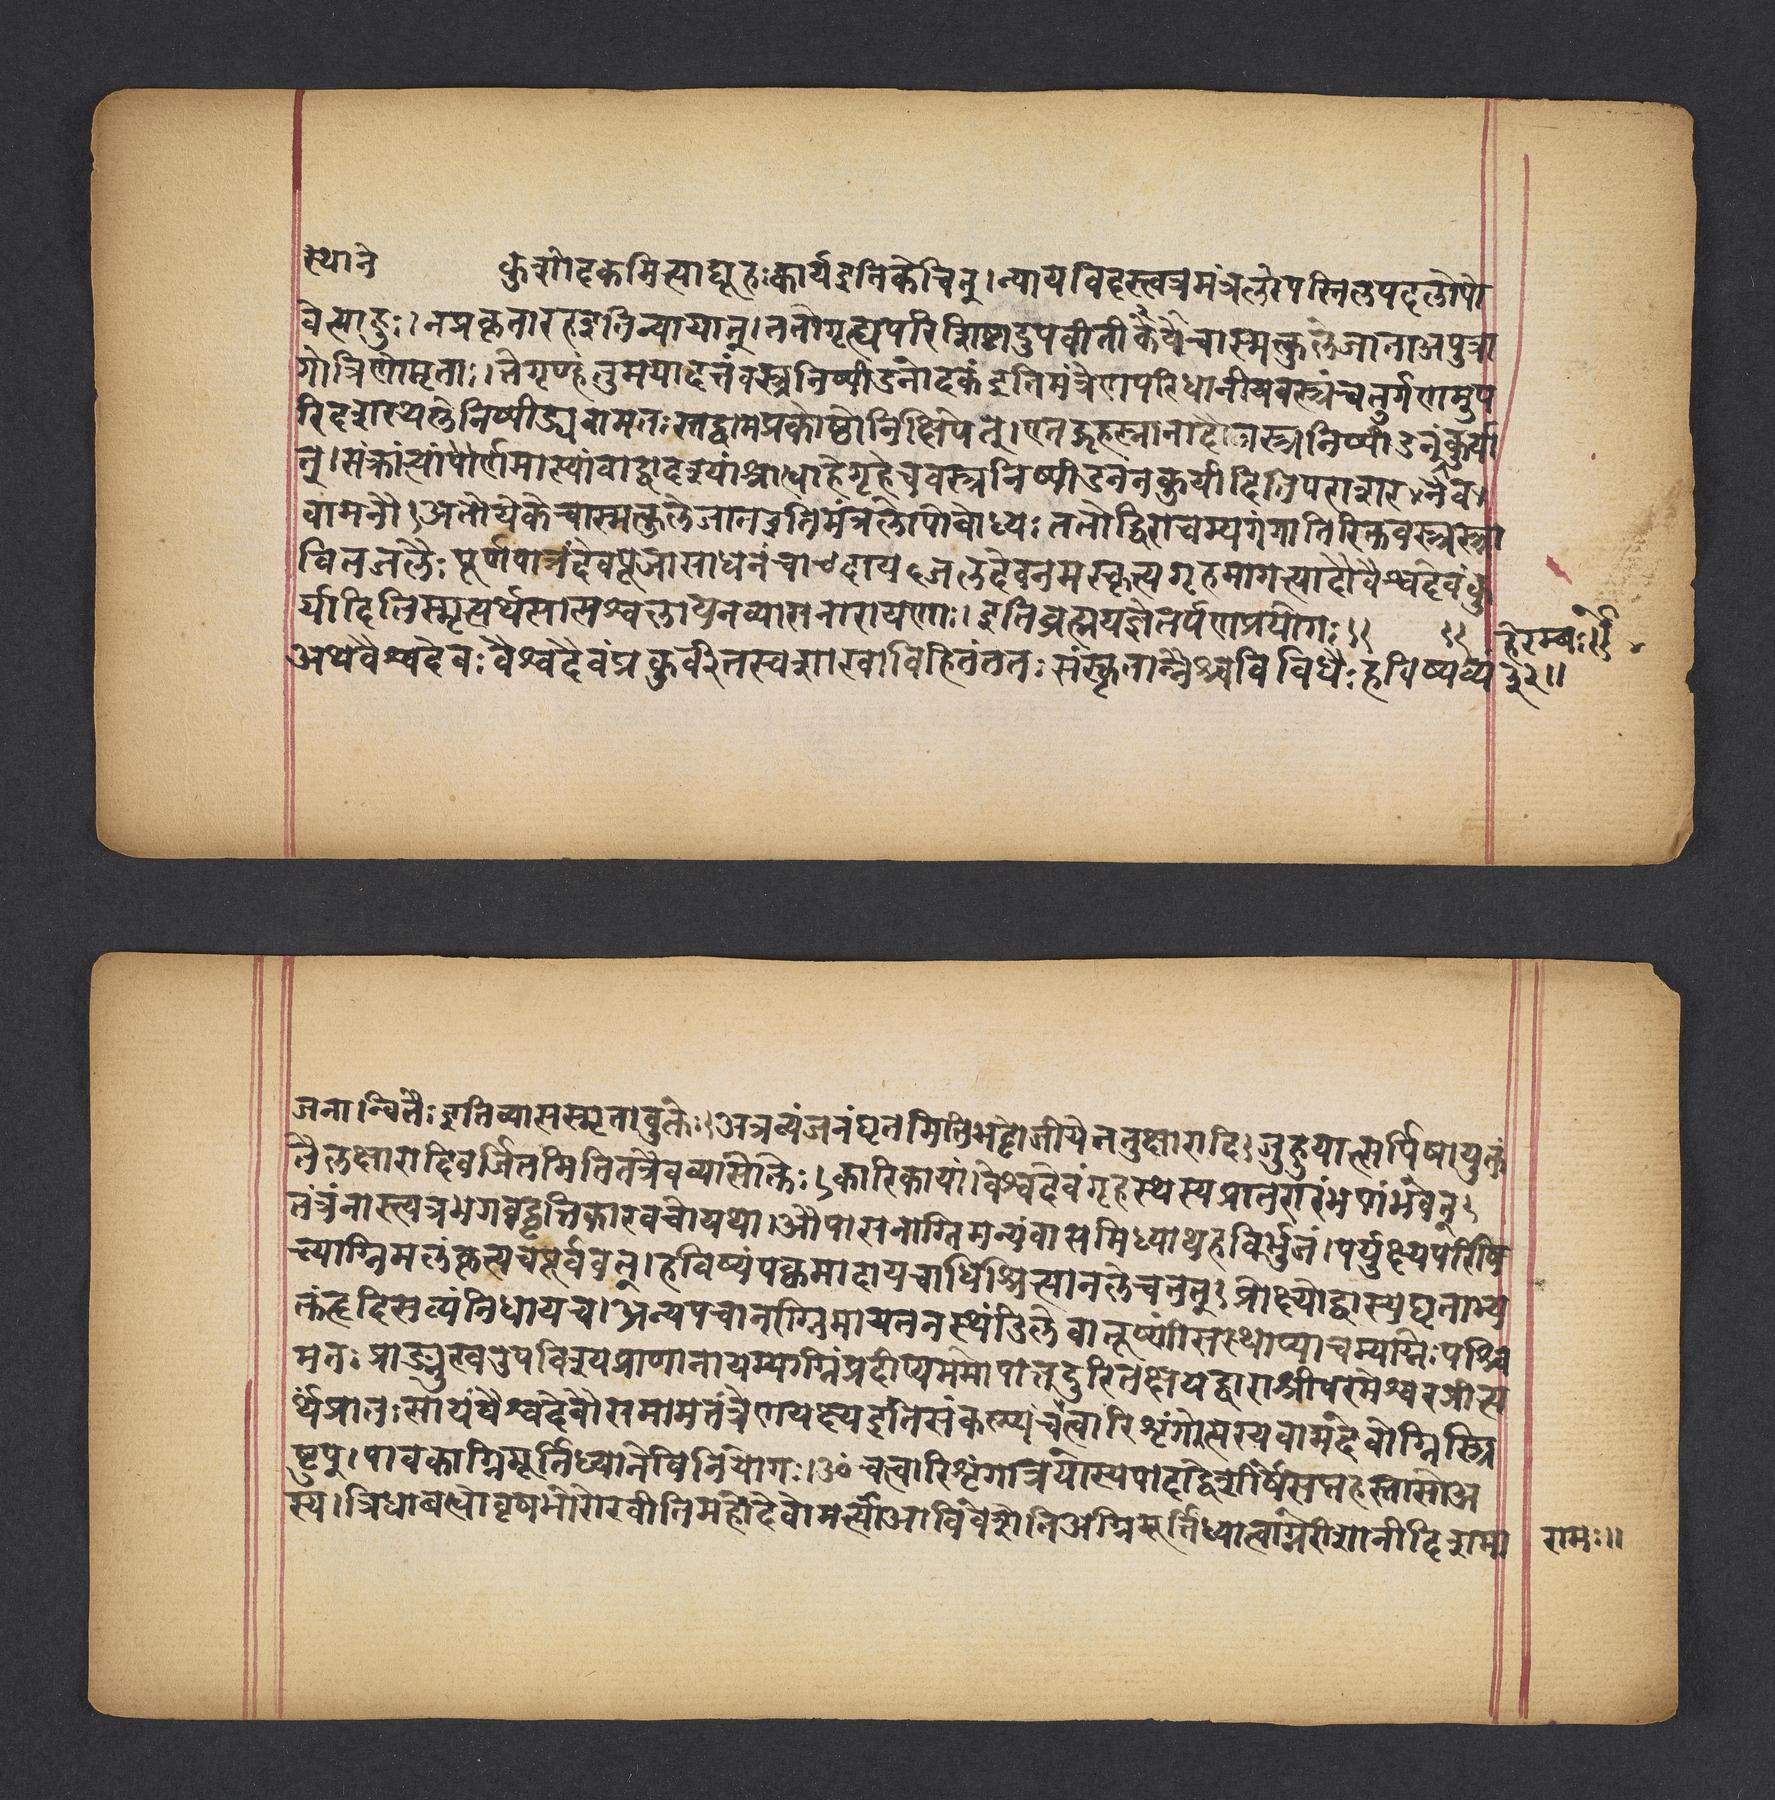 स्थाने कुशोदकमित्याद्यूहःकार्यइतिकेचित्।न्यायविदस्त्वत्रमंत्रलोपस्तिलपदलोपो
वेत्याहुः।नप्रकृतावूहइतिन्यायात्।ततोगृह्यपरिशिष्टादुपवीतीयेकेचास्मत्कुलेजाताअपुत्रा
गोत्रिणोमृताः।तेगृण्हंतुमयादत्तंवस्त्रनिष्पीडनोदकंइतिमंत्रेणपरिधानीयवस्त्रंचतुर्गुणमुप
रिदशास्थलेनिष्पीड्यवामतःस्तद्वामप्रकोष्ठेनिक्षिपेत्।एतद्गृहस्नानादौवस्त्रनिष्पीडनंनकुर्या
त्।संक्रांत्यांपौर्णमास्यांवाद्वादश्यांश्राद्धाहेगृहेचवस्त्रनिष्पीडनंनकुर्यादितिपराशरः नैव
वामनौ।अतोयेकेचास्मत्कुलेजातइतिमंत्रलोपोबोध्यः ततोद्विराचम्यगंगातिरिक्तवस्त्रस्ना
वितजलैः पूर्णपात्रंदेवपूजासाधनंचादायजलदेवंनमस्कृत्यगृहमागत्यादौवैश्वदेवंकु
र्यादितिस्मृत्यर्थसाराश्वलायनव्यासनारायणाः।इतिब्रह्मयज्ञेतर्पणप्रयोगः॥ ॥ हेरम्बः॥
अथवैश्वदेवः वैश्वदेवंप्रकुर्वीतस्वशाखाविहितंततः संस्कृतान्नैश्चविविधैः हविष्यव्यं ३२॥
जना।न्वितैः इतिव्यासस्मृतावुक्तेः।अत्रव्यंजनंघृतमितिभट्टोजीयेनतुक्षारादि।जुहुयात्सर्पिषायुक्तं
तैलक्षारादिवर्जितमितितत्रैवव्यासोक्तेः।कारिकायां।वैश्वदेवंगृहस्थस्यप्रातरारंभणंभवेत्।
तंत्रंनास्त्यत्रभगवद्वृत्तिकारवचोयथा।औपासनाग्निमन्यंवासमिध्याथहविर्भुजं।पर्युक्ष्यपरिषि
च्याग्निमलंकृत्यचपूर्ववत्।हविष्यंपक्वमादायचाधिश्रित्यानलेचतत्।प्रोक्ष्योद्वास्यघृताभ्य
क्तंहृदिसव्यंनिधायच।अन्यपचनाग्निमायतनस्थंडिलेवातूष्णींसंस्थाप्याचम्याग्नेःपश्चि
मतः प्राङ्मुखउपविश्यप्राणानायम्याग्निंप्रदीप्यममोपात्तदुरितक्षयद्वाराश्रीपरमेश्वरप्रीत्य
र्थंप्रातःसायंवैश्वदेवौसमानतंत्रेणयक्ष्यइतिसंकल्प्य चत्वारिशृंगोत्सस्यवामदेवोग्निस्त्रि
ष्टुप्।पावकाग्निमूर्तिध्यानेविनियोगः।ॐ चत्वारिशृंगात्रयोस्यपादाद्वेशीर्षेसप्तहस्तासोअ
स्य।त्रिधाबद्धोवृषभोरोरवीतिमहोदेवोमर्त्याँआविवेशेतिअग्निमूर्तिंध्यात्वाग्नेरीशानीदिशमा रामः॥